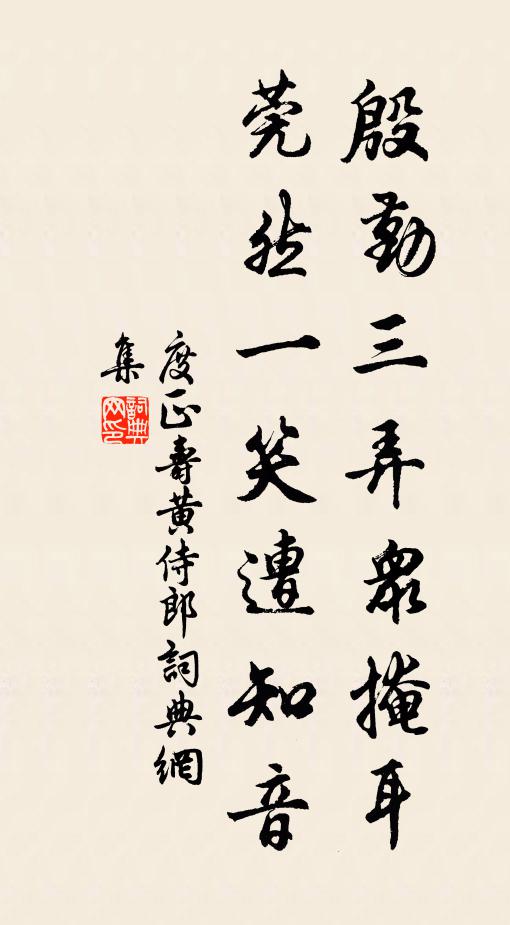 殷勤三弄衆掩耳
莞然一笑遭知音
度正壽黃侍郎詞典網
集
詞典网印